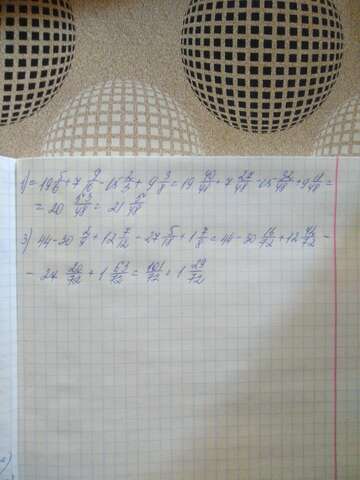 1) = 19 5/6 + 7 9/16 - 15 2/3 + 9 3/8 = 19 40/48 + 7 27/48 - 15 32/48 + 9 18/48 =
= 20 53/48 = 21 5/48
3) 44 - 30 2/9 + 12 7/12 - 27 5/18 + 1 7/8 = 44 - 30 16/72 + 12 42/72 -
- 27 20/72 + 1 63/72 = 101/72 = 1 29/72